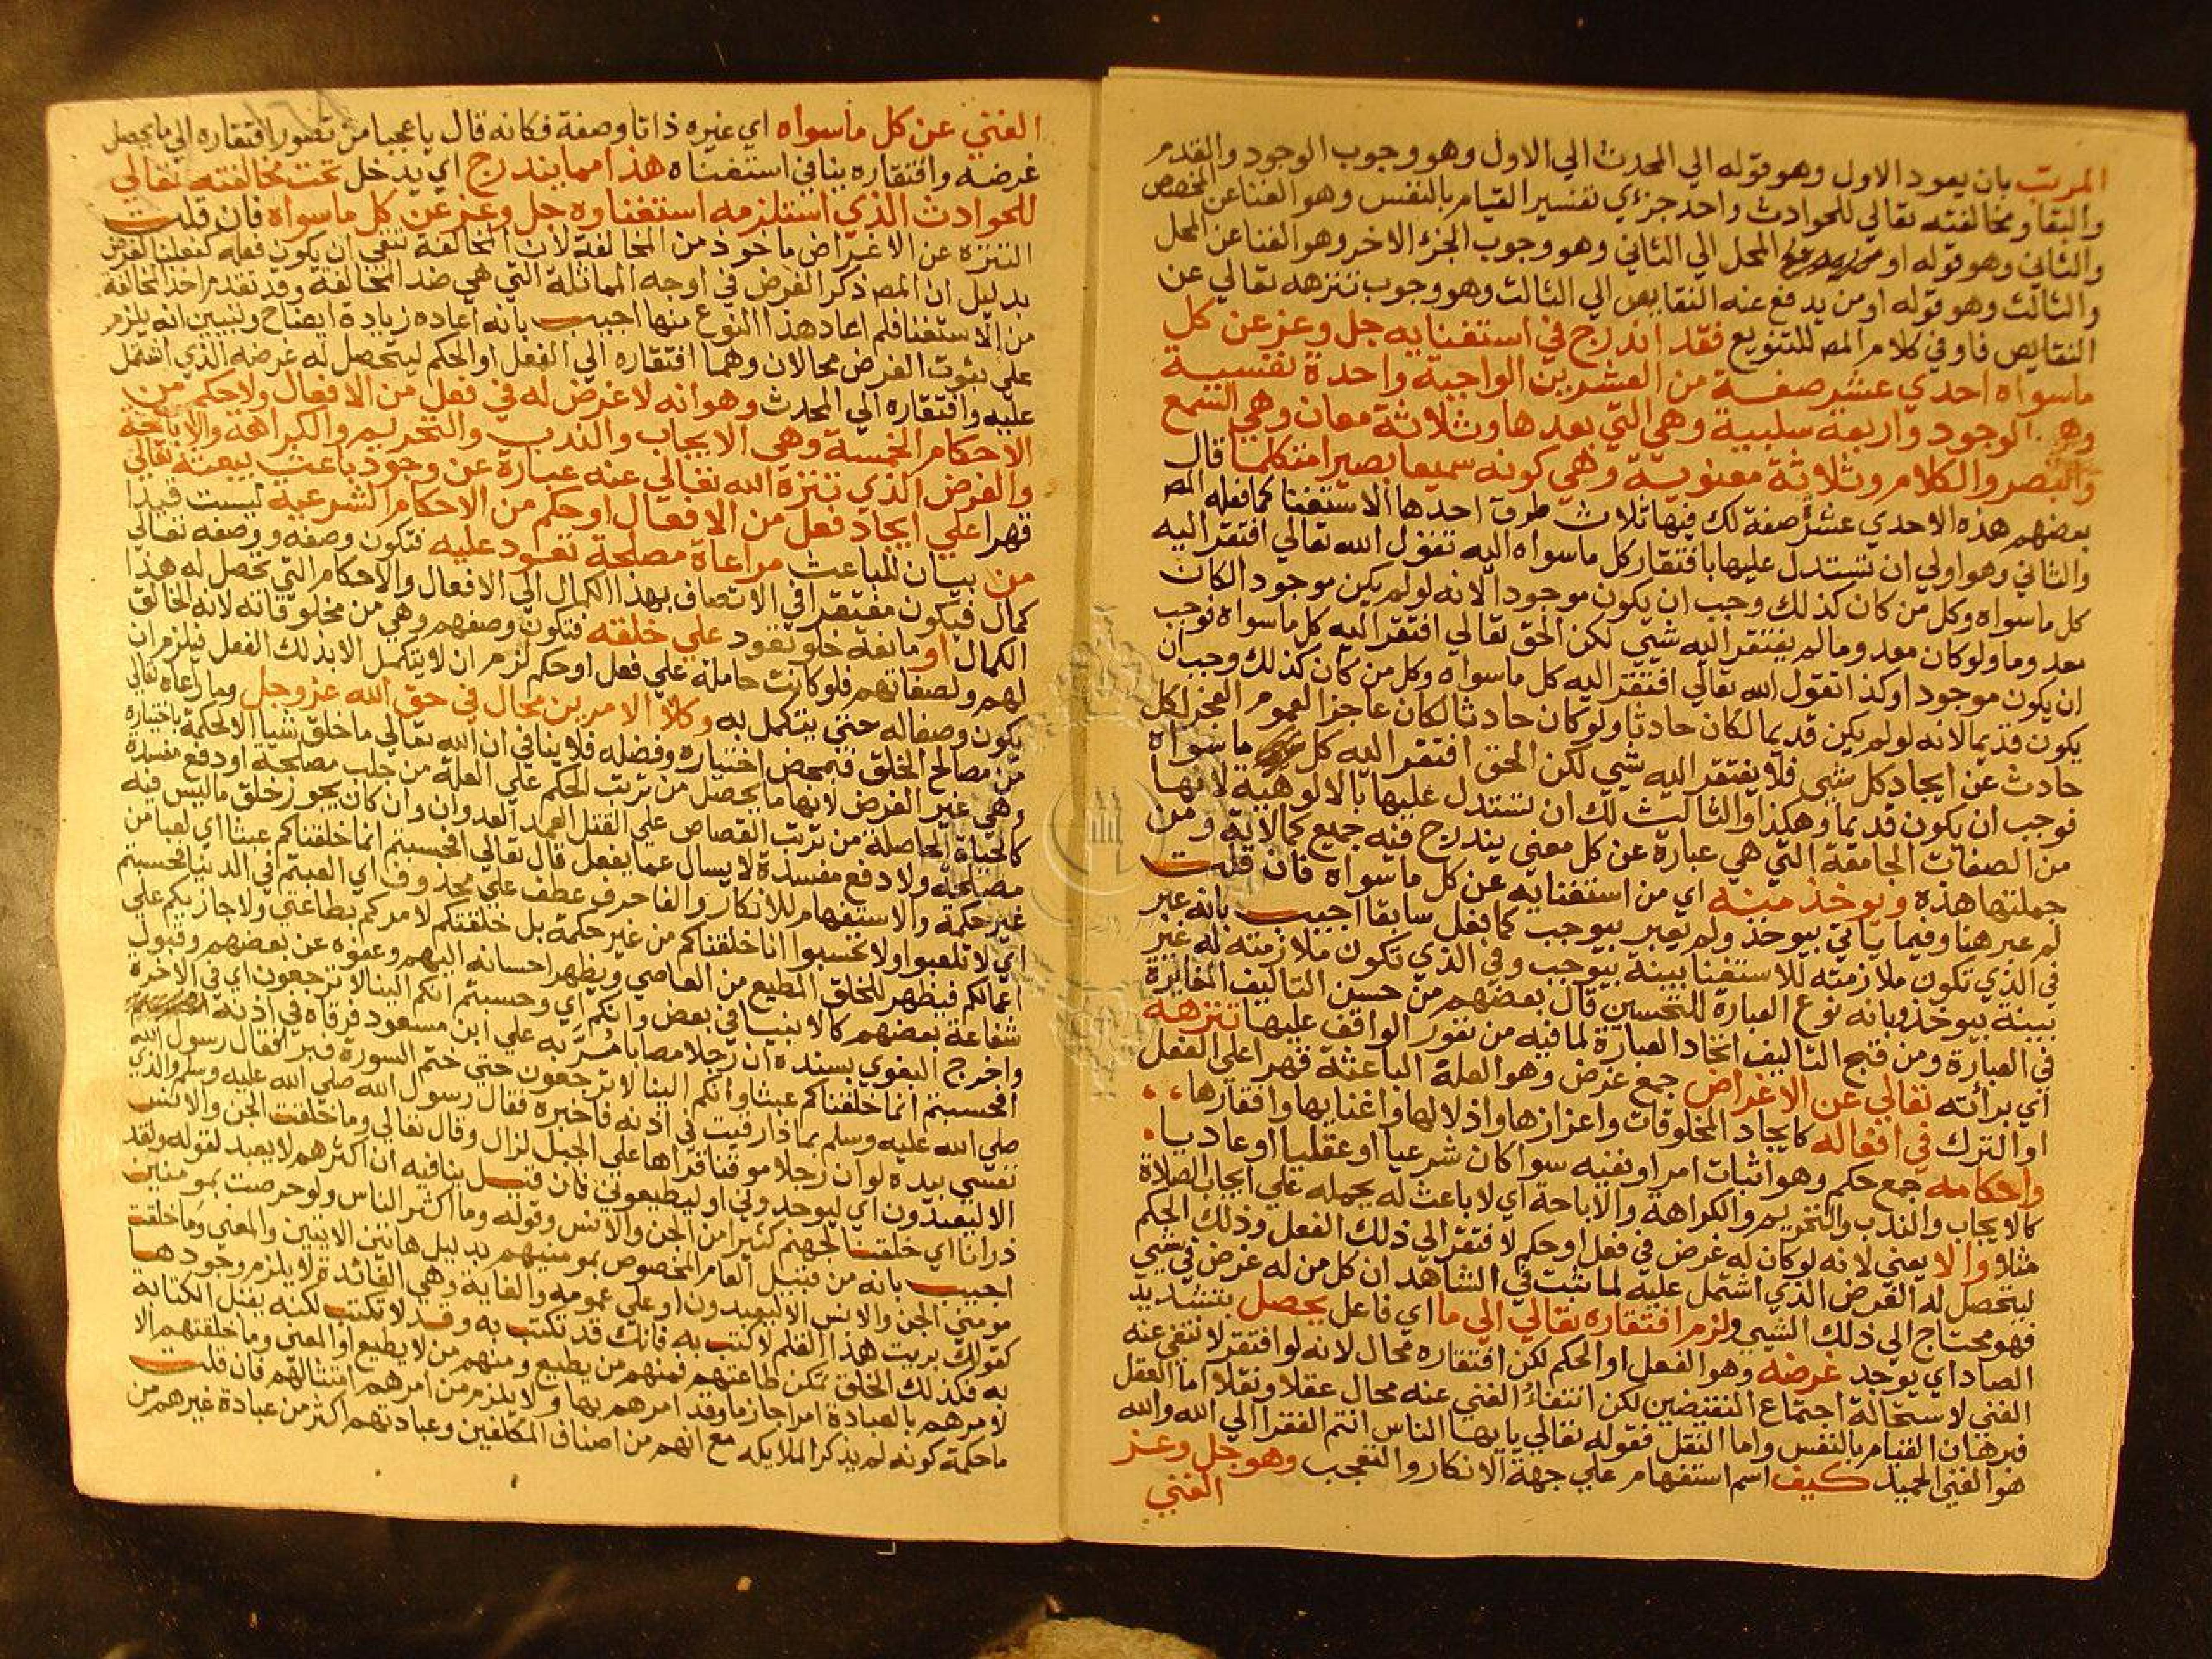 المرتب بان يعود الاول وهو قوله الي المحدث الي الاول وهو وجوب الوجود والقدم
والبقا ومخالفته تعالي للحوادث واحد جزءي تفسير القيام بالنفس وهو الغنا عن المخصص
والثاني وهو قوله او المحل الي الثاني وهو وجوب الجزء الاخر وهو الغنا عن المحل
والثالث وهو قوله او من يدفع عنه النقايص الي الثالث وهو وجوب تنزهه تعالي عن
النقايص فاو في كلام المص للتنويع فقد اندرج في استغنايه جل وعز عن كل
ماسواه احدي عشر صفة من العشرين الواجبة واحدة نفسية
وهي الوجود واربعة سلبية وهي التي بعدها وثلاثة معان وهي السمع
والبصر والكلام وثلاثة معنوية وهي كونه سميعا بصيرا متكلما قال
بعضهم هذه الاحدي عشر صفة لك فيها ثلاث طرق احدها الاستغنا كما فعله المص
والثاني وهو اولي ان تستدل عليها بافتقار كل ماسواه اليه تقول الله تعالي افتقر اليه
كل ماسواه وكل من كان كذلك وجب ان يكون موجودا لانه لو لم يكن موجودا لكان
معدوما ولو كان معدوما لم يفتقر اليه شي لكن الحق تعالي افتقر اليه كل ماسواه فوجب
ان يكون موجودا وكذا تقول الله تعالي افتقر اليه كل ماسواه وكل من كان كذلك وجب ان
يكون قديما لانه لو لم يكن قديما لكان حادثا ولو كان حادثا لكان عاجزا لعموم العجز لكل
حادث عن ايجاد كل شي فلا يفتقر اليه شي لكن الحق افتقر اليه كل ماسواه
فوجب ان يكون قديما وهكذا والثالث لك ان تستدل عليها بالالوهية لانها
من الصفات الجامعة التي هي عبارة عن كل معني يندرج فيه جميع كمالاته ومن
جملتها هذه ويوخذ منه اي من استغنايه عن كل ماسواه فان قلت
لم عبر هنا وفيما ياتي بيوخذ ولم يعبر بيوجب كما فعل سابقا اجيب بانه عبر
في الذي تكون ملازمته للاستغنا بينة بيوجب وفي الذي تكون ملازمته له غير
بينة بيوخذ وبانه نوع العبارة للتحسين قال بعضهم من حسن التاليف المغايرة
في العبارة ومن قبح التاليف اتحاد العبارة لما فيه من نفور الواقف عليها تنزهه
اي براته تعالي عن الاغراض جمع غرض وهو العلة الباعثة قهرا علي الفعل
او الترك في افعاله كايجاد المخلوقات واعزازها واذلالها واغنايها وافقارها
واحكامه جمع حكم وهو اثبات امر او نفيه سوا كان شرعيا او عقليا او عاديا
كالايجاب والندب والتحريم والكراهة والاباحة اي لا باعث له يحمله علي ايجاب الصلاة
مثلا والا يعني لانه لو كان له غرض في فعل او حكم لافتقر الي ذلك الفعل وذلك الحكم
ليتحصل له الغرض الذي اشتمل عليه لما ثبت في الشاهد ان كل من له غرض في شي
فهو محتاج الي ذلك الشي ولزم افتقاره تعالي الي ما اي فاعل يحصل بتشديد
الصاد اي يوجد غرضه وهو الفعل او الحكم لكن افتقاره محال لانه لو افتقر لانتفي عنه
الغني لاستحالة اجتماع النقيضين لكن انتفاء الغني عنه محال عقلا ونقلا اما العقل
فبرهان القيام بالنفس واما النقل فقوله تعالي يايها الناس انتم الفقرا الي الله والله
هو الغني الحميد كيف اسم استفهام علي جهة الانكار والتعجب وهو جل وعز
الغني
الغني عن كل ماسواه اي غيره ذاتا وصفة فكانه قال ياعجبا من تصور افتقاره الي ما يحصل
غرضه وافتقاره ينافي استغناه هذا مما يندرج اي يدخل تحت مخالفته تعالي
للحوادث الذي استلزمه استغناوه جل وعز عن كل ماسواه فان قلت
التنزه عن الاغراض ماخوذ من المخالفة لان المخالفة تنفي ان يكون فعله كفعلنا لغرض
بدليل ان المص ذكر الغرض في اوجه المماثلة التي هي ضد المخالفة وقد تقدم اخذ المخالفة
من الاستغنا فلم اعاد هذا النوع منها اجيب بانه اعاده زيادة ايضاح وتبيين انه يلزم
علي ثبوت الغرض محالان وهما افتقاره الي الفعل او الحكم ليتحصل له غرضه الذي اشتمل
عليه وافتقاره الي المحدث وهو انه لا غرض له في فعل من الافعال ولا حكم من
الاحكام الخمسة وهي الايجاب والندب والتحريم والكراهة والاباحة
والغرض الذي تنزه الله تعالي عنه عبارة عن وجود باعث يبعثه تعالي
قهرا علي ايجاد فعل من الافعال او حكم من الاحكام الشرعية ليست قيدا
من بيان للباعث مراعاة مصلحة تعود عليه فتكون وصفه ووصفه تعالي
كمال فيكون مفتقرا في الاتصاف بهذا الكمال الي الافعال والاحكام التي تحصل له هذا
الكمال او مانعة خلو تعود علي خلقه فتكون وصفهم وهي من مخلوقاته لانه الخالق
لهم ولصفاتهم فلو كانت حاملة علي فعل او حكم لزم ان لا يتكمل الا بذلك الفعل فيلزم ان
يكون وصفا له حتي يتكمل به وكلا الامرين محال في حق الله عز وجل وما راعاه تعالي
من مصالح الخلق فبمحض اختياره وفضله فلا ينافي ان الله تعالي ما خلق شيا الا لحكمة باختياره
وهي غير الغرض لانها ما يحصل من ترتب الحكم علي العلة من جلب مصلحة او دفع مفسدة
كالحياة الحاصلة من ترتب القصاص علي القتل العمد العدوان وان كان يجوز خلق ما ليس فيه
مصلحة ولا دفع مفسدة لا يسال عما يفعل قال تعالي افحسبتم انما خلقناكم عبثا اي لعبا من
غير حكمة والاستفهام للانكار والفا حرف عطف علي محذوف اي العبتم في الدنيا فحسبتم
اي لا تلعبوا ولا تحسبوا انا خلقناكم من غير حكمة بل خلقتكم لامركم بطاعتي ولاجازيكم علي
اعمالكم فيظهر للخلق المطيع من العاصي ويظهر احسانه اليهم وعفوه عن بعضهم وقبول
شفاعة بعضهم كالانبيا في بعض وانكم اي وحسبتم انكم الينا لا ترجعون اي في الاخرة
واخرج البغوي بسنده ان رجلا مصابا مر به علي ابن مسعود فرقاه في اذنه
افحسبتم انما خلقناكم عبثا وانكم الينا لا ترجعون حتي ختم السورة فبرا فقال رسول الله
صلي الله عليه وسلم بماذا رقيت في اذنه فاخبره فقال رسول الله صلي الله عليه وسلم والذي
نفسي بيده لو ان رجلا موقنا قراها علي الجبل لزال وقال تعالي وما خلقت الجن والانس
الا ليعبدون اي ليوحدوني او ليطيعوني فان قيل ينافيه ان اكثرهم لا يعبد لقوله ولقد
ذرانا اي خلقنا لجهنم كثيرا من الجن والانس وقوله وما اكثر الناس ولو حرصت بمومنين
اجيب بانه من قبيل العام المخصوص بمومنيهم بدليل هاتين الايتين والمعني وما خلقت
مومني الجن والانس الا ليعبدون او علي عمومه والغاية وهي الفائدة لا يلزم وجودها
كقولك بريت هذا القلم لاكتب به فانك قد تكتب به وقد لا تكتب لكنه يقبل الكتابة
به فكذلك الخلق تمكن طاعتهم فمنهم من يطيع ومنهم من لا يطيع او المعني وما خلقتهم الا
لامرهم بالعبادة امرا جازما وقد امرهم بها ولا يلزم من امرهم امتثالهم فان قلت
ما حكمة كونه لم يذكر الملايكة مع انهم من اصناف المكلفين وعبادتهم اكثر من عبادة غيرهم من